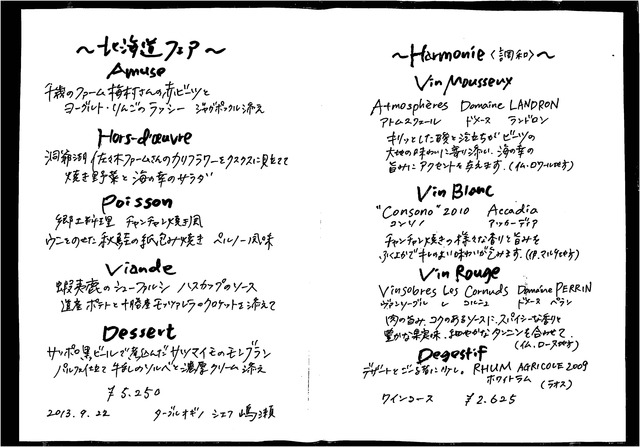 〜北海道フェア〜
Amuse
千歳のファーム 梅村さんの赤ビーツと
ヨーグルト・りんごのラッシー ジャガポックル添え
Hors-d'œuvre
洞爺湖 佐々木ファームさんのカリフラワーをクスクスに見立てて
焼き野菜と海の幸のサラダ
Poisson
郷土料理 チャンチャン焼き風
ウニをのせた秋鮭の紙包み焼き ペルノー風味
Viande
蝦夷鹿のシューファルシ ハスカップのソース
道産ポテトと十勝産モッツァレラのクロケットを添えて
Dessert
サッポロ黒ビールで煮込んだサツマイモのモンブラン
パルフェ仕立て 牛乳のソルベと濃厚クリーム添え
¥5.250
2013.9.22 ターブルオギノ シェフ 嶋瀬
〜Harmonie〈調和〉〜
Vin Mousseux
Atmosphères Domaine LANDRON
アトムスフェール ドメーヌ ランドロン
キリッとした酸と泡立ちがビーツの
大地の味わいに寄り添い、海の幸の
旨みにアクセントを与えます。(仏・ロワール地方)
Vin Blanc
"Consono" 2010 Accadia
コンソノ アッカーディア
チャンチャン焼きの様々な香りと旨みを
ふくよかでキレのよい味わいが包みます。(伊・マルケ地方)
Vin Rouge
Vinsobres Les Cornuds Domaine PERRIN
ヴァンソーブル レ コルニュ ドメーヌ ペラン
肉の旨み、コクのあるソースに、スパイシーな香りと
豊かな果実味、細やかなタンニンを合わせて。
(仏・ローヌ地方)
Degestif
デザートとご一緒に少し。 RHUM AGRICOLE 2009
ホワイトラム (ラオス)
ワインコース ¥2.625